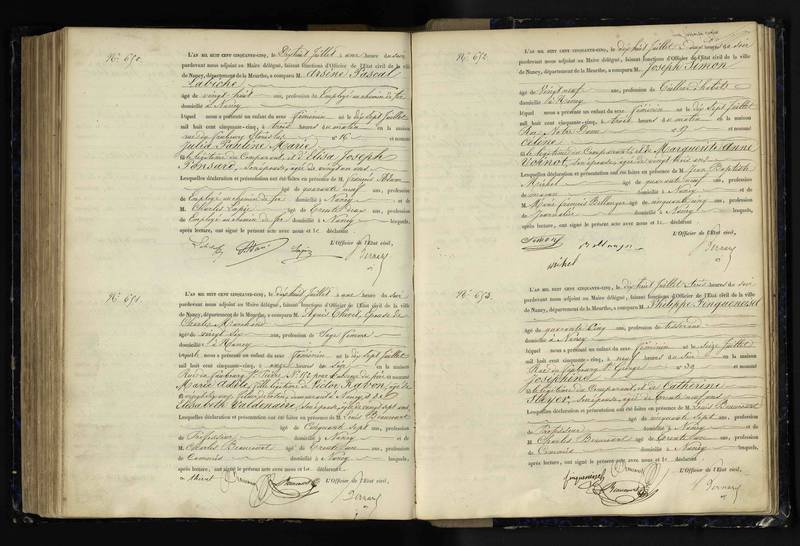 N° 670.
L'AN MIL HUIT CENT CINQUANTE-CINQ, le Dix huit Juillet à onze heures du soir
pardevant nous adjoint au Maire délégué, faisant fonctions d'Officier de l'État civil de la ville
de Nancy, département de la Meurthe, a comparu M. Arsène Pascal
Labiche
âgé de vingt huit ans, profession de Employé au chemin de fer
domicilié à Nancy
lequel nous a présenté un enfant du sexe féminin né le dix sept Juillet
mil huit cent cinquante-cinq, à trois heures du matin en la maison
rue du faubourg n° 16 et nommé
Julia Pauline Marie
fille légitime du Comparant, et d'Elisa Joseph
Ponsard, son épouse, âgée de vingt un ans
Lesquelles déclaration et présentation ont été faites en présence de M. François Adam
âgé de quarante neuf ans, profession
de Employé au chemin de fer domicilié à Nancy et de
M. Charles âgé de trente deux ans, profession
de Employé au chemin de fer domicilié à Nancy lesquels,
après lecture, ont signé le présent acte avec nous et le déclarant
L'Officier de l'État civil,
N° 671.
L'AN MIL HUIT CENT CINQUANTE-CINQ, le dix huit Juillet à une heure du soir
pardevant nous adjoint au Maire délégué, faisant fonctions d'Officier de l'État civil de la ville
de Nancy, département de la Meurthe, a comparu M. Agnès épouse de
Charles
âgée de vingt six ans, profession de Sage femme
domiciliée à Nancy
lequel nous a présenté un enfant du sexe féminin né le dix sept Juillet
mil huit cent cinquante-cinq, à heures du soir en la maison
Rue du faubourg St Pierre N° et nommé
Marie Adèle, fille légitime de Victor
Elisabeth Valdenaire, son épouse, âgée de vingt sept ans
Lesquelles déclaration et présentation ont été faites en présence de M. Louis Beaucourt
âgé de Cinquante sept ans, profession
de Professeur domicilié à Nancy et de
M. Charles Beaucourt âgé de trente ans, profession
de Commis domicilié à Nancy lesquels,
après lecture, ont signé le présent acte avec nous et le déclarant
L'Officier de l'État civil,
N° 672.
L'AN MIL HUIT CENT CINQUANTE-CINQ, le dix huit Juillet à heures du soir
pardevant nous adjoint au Maire délégué, faisant fonctions d'Officier de l'État civil de la ville
de Nancy, département de la Meurthe, a comparu M. Joseph Simon
âgé de vingt neuf ans, profession de Tailleur d'habits
domicilié à Nancy
lequel nous a présenté un enfant du sexe féminin né le dix sept Juillet
mil huit cent cinquante-cinq, à trois heures du matin en la maison
Rue Notre Dame n° 17 et nommé
Céline
fille légitime du Comparant, et de Marguerite Anne
son épouse, âgée de vingt trois ans
Lesquelles déclaration et présentation ont été faites en présence de M. Jean Baptiste
Michel âgé de quarante neuf ans, profession
de domicilié à Nancy et de
M. Marie François Bellanger âgé de cinquante cinq ans, profession
de Journalier domicilié à Nancy lesquels,
après lecture, ont signé le présent acte avec nous et le déclarant
L'Officier de l'État civil,
Simon
Michel
N° 673.
L'AN MIL HUIT CENT CINQUANTE-CINQ, le dix huit Juillet à trois heures du soir
pardevant nous adjoint au Maire délégué, faisant fonctions d'Officier de l'État civil de la ville
de Nancy, département de la Meurthe, a comparu M. Philippe
âgé de quarante cinq ans, profession de tisserand
domicilié à Nancy
lequel nous a présenté un enfant du sexe féminin né le seize Juillet
mil huit cent cinquante-cinq, à neuf heures du soir en la maison
Rue du faubourg St Georges n° 39 et nommé
Joséphine
fille légitime du Comparant et de Catherine
Mayer, son épouse, âgée de trente neuf ans
Lesquelles déclaration et présentation ont été faites en présence de M. Louis Beaucourt
âgé de cinquante sept ans, profession
de Professeur domicilié à Nancy et de
M. Charles Beaucourt âgé de trente ans, profession
de Commis domicilié à Nancy lesquels,
après lecture, ont signé le présent acte avec nous et le déclarant
L'Officier de l'État civil,